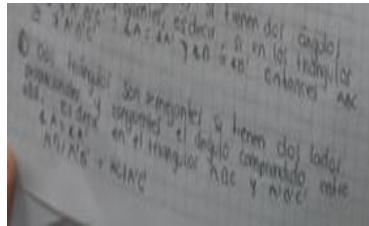 si tienen dos ángulos
es decir, si en los triángulos ABC
y A'B'C' ∠A = ∠A' y ∠B = ∠B' entonces
Dos triángulos son semejantes si tienen dos lados
proporcionales y congruentes el ángulo comprendido entre
ellos, es decir en el triángulos ABC y A'B'C'
∠A = ∠A'
AB/A'B' = AC/A'C'